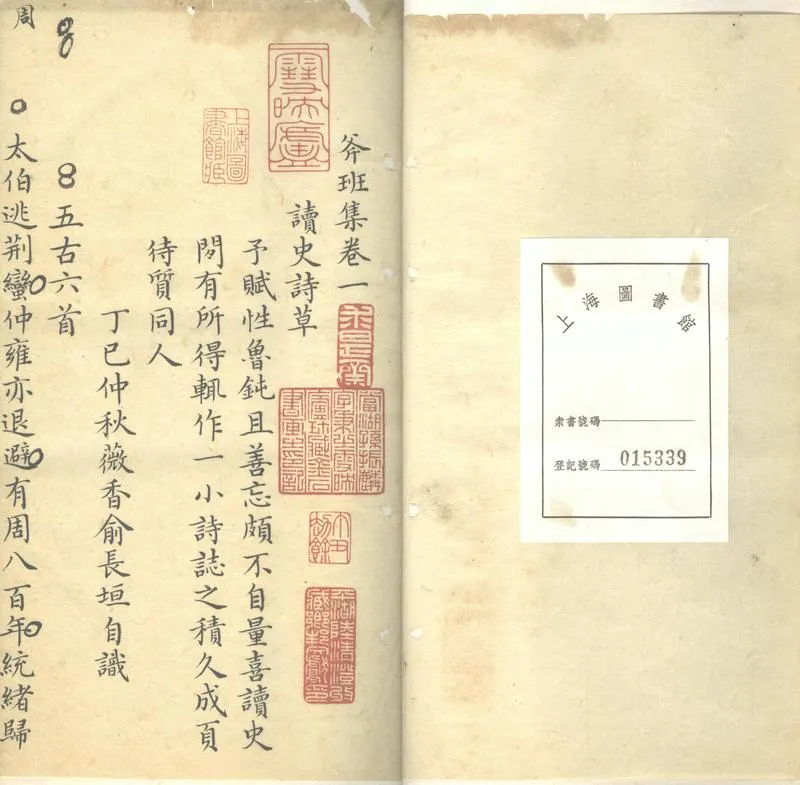 上海圖書館
索書號碼
登記號碼 015339
斧班集卷一
讀史詩草
予賦性魯鈍且善忘頗不自量喜讀史
閒有所得輒作一小詩誌之積久成頁
待質同人
丁巳仲秋薇香俞長垣自識
五古六首
周
太伯逃荆蠻仲雍亦退避有周八百年統緒歸
雪映廬
上海圖書館藏